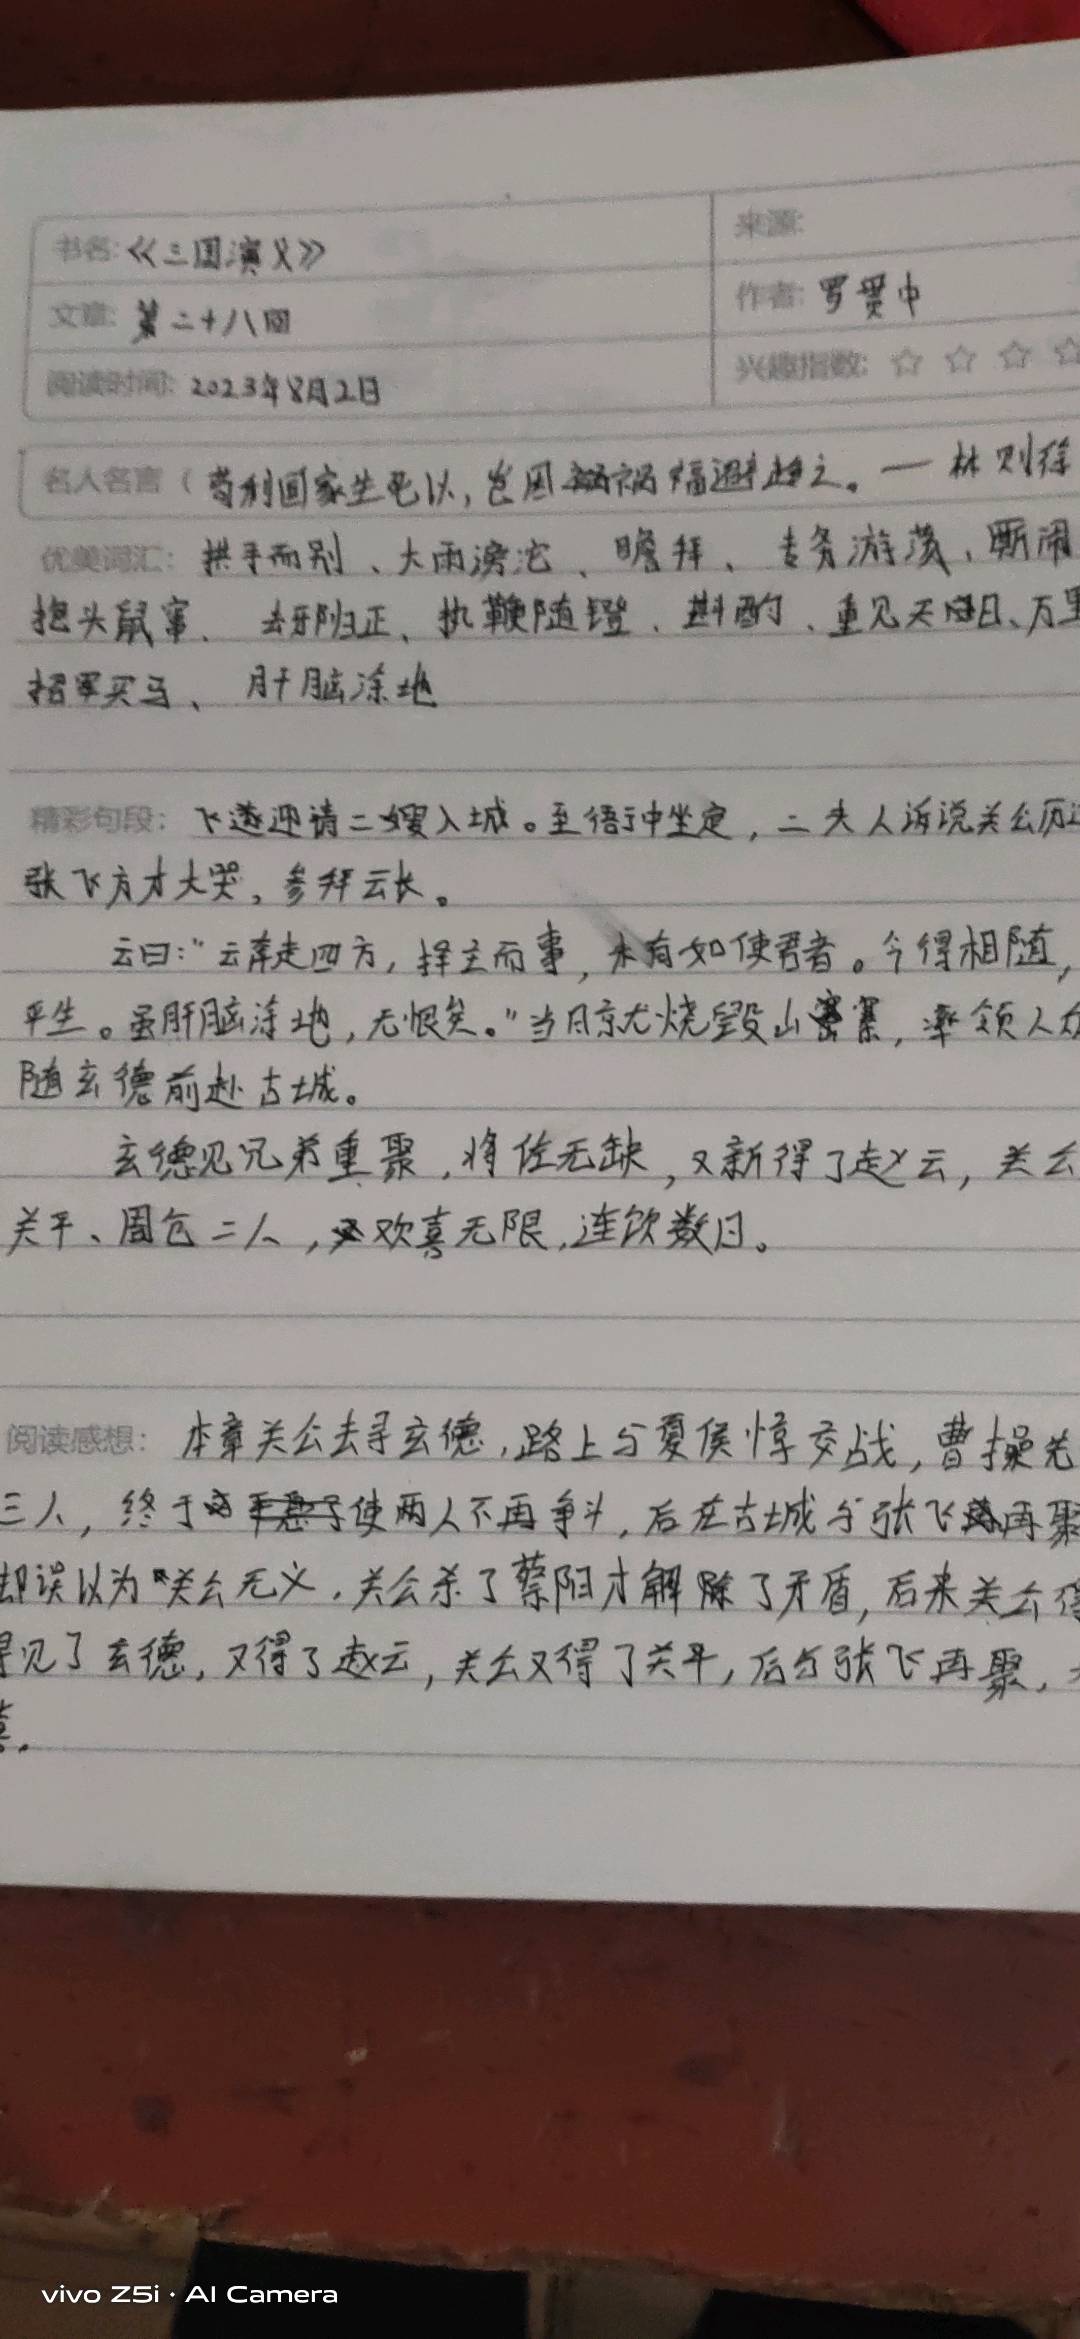 书名:《三国演义》
来源:
文章: 第二十八回
作者: 罗贯中
阅读时间: 2023年8月2日
兴趣指数: ☆ ☆ ☆ ☆
名人名言( 苟利国家生死以,岂因祸福避趋之。—林则徐
优美词汇: 拱手而别、大雨滂沱、瞻拜、专务游荡、厮闹
抱头鼠窜、去邪归正、执鞭随镫、斟酌、重见天日、万里
招军买马、肝脑涂地
精彩句段: 飞遂迎请二嫂入城。至衙中坐定,二夫人诉说关公历过
张飞方才大哭,参拜云长。
云曰:“云奔走四方,择主而事,未有如使君者。今得相随,
平生。虽肝脑涂地,无恨矣。”当日就烧毁山寨,率领人众
随玄德前赴古城。
玄德见兄弟重聚,将佐无缺,又新得了赵云,关公
关平、周仓二人,欢喜无限,连饮数日。
阅读感想: 本章关公去寻玄德,路上与夏侯惇交战,曹操先
三人,终于使两人不再争斗,后在古城与张飞再聚
却误以为关公无义,关公杀了蔡阳才解除了矛盾,后来关公得
得见了玄德,又得了赵云,关公又得了关平,后与张飞再聚,
喜.
vivo Z5i · AI Camera